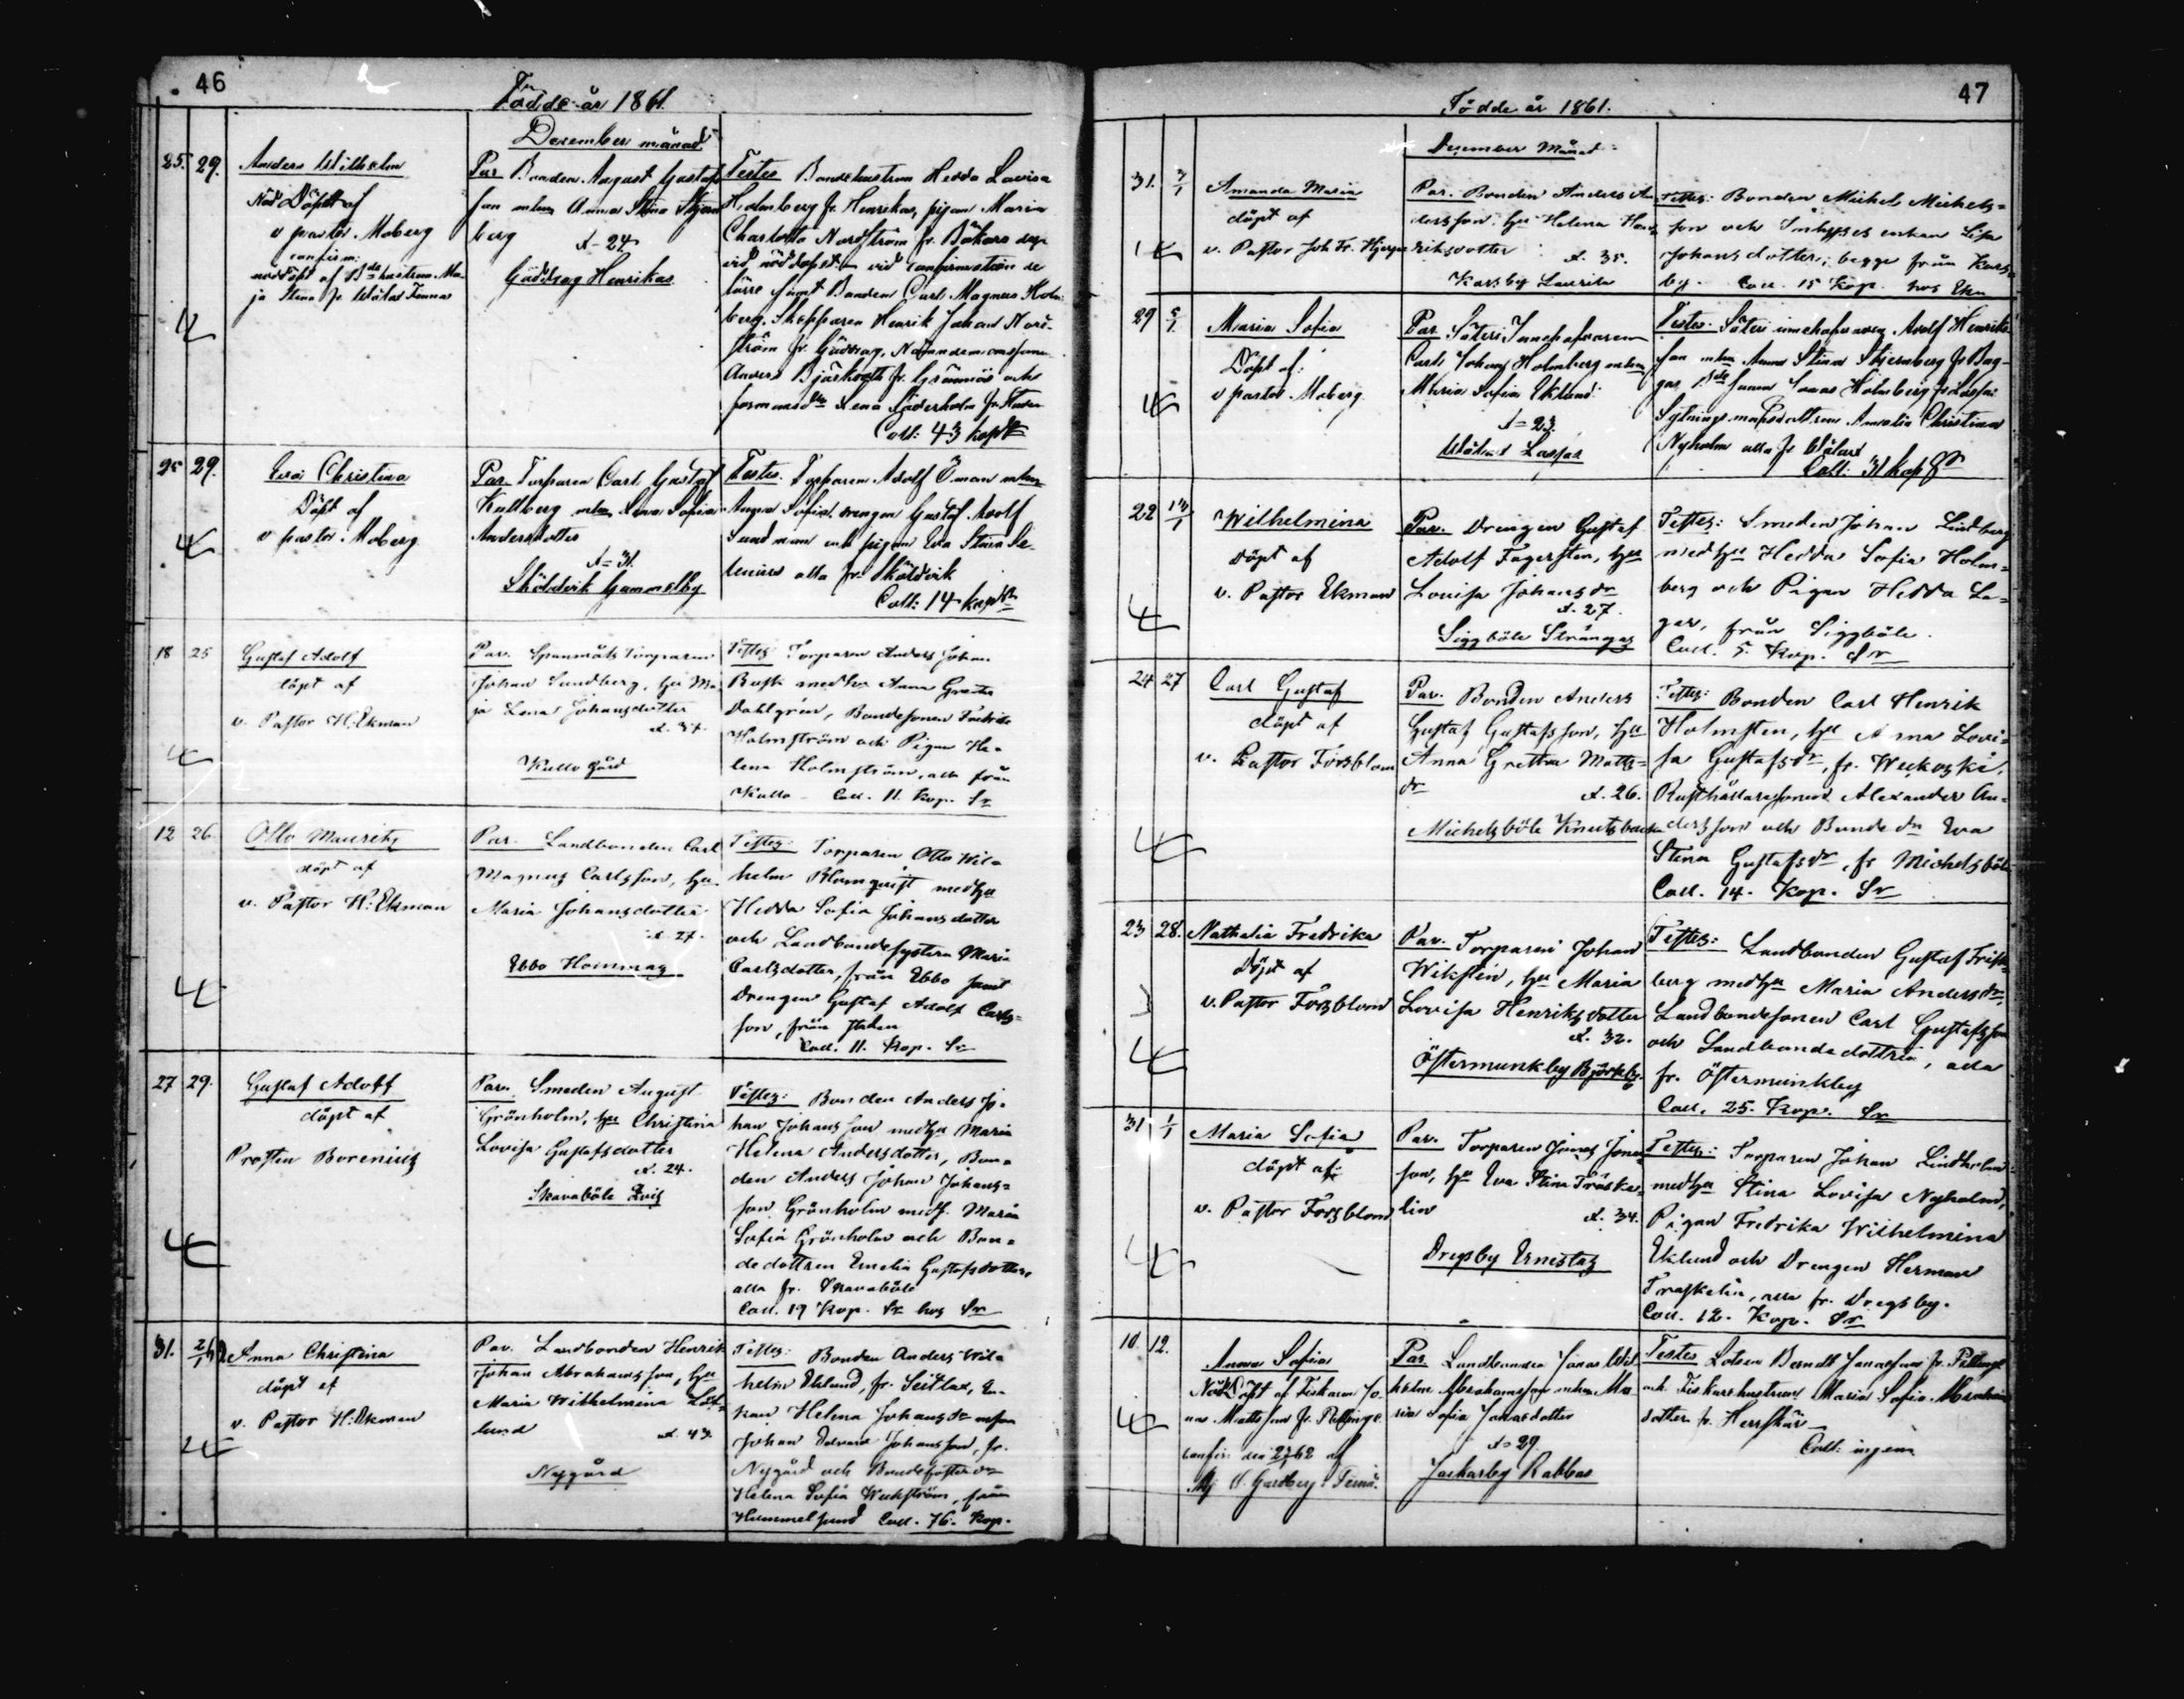 46
Födde år 1861.
December månad
25. 29. Anders Wilhelm
Nöd Döpt af
v pastor Moberg
confirm:
nöddöpt af Bde hustrun Ma-
ja Stina fr Wålax Finnas
Par Bonden August Gustafs
son mhu Anna Stina Stjern
berg
A- 24
Gäddrag Henrikas
Testes Bondehustrun Hedda Lovisa
Holmberg fr. Henrikas, pigan Maria
Charlotta Nordström fr. Båkars
vid nöddopet - vid confirmation de
förre samt Bonden Carl Magnus Holm
berg, Skepparen Henrik Johan Nord-
ström fr. Gäddrag,
Anders Björkqvist fr. Grännäs och
Lena Söderholm fr.
Coll: 43 kop Sr
25 29. Eva Christina
Döpt af
v pastor Moberg
Par Torparen Carl Gustaf
Kullberg mhu Lena Sofia
Andersdotter
A= 31.
Sköldvik Gammelby
Testes. Torparen Adolf Öman mhu
Anna Sofia, drengen Gustaf Adolf
Sundman och pigan Eva Stina Se-
lenius alla fr. Sköldvik
Coll: 14 kop Sr
18 25 Gustaf Adolf
döpt af
v. Pastor H. Ekman
Par. Spanmåls Torparen
Johan Sundberg, hu Ma
ja Lena Johansdotter
A. 37.
Kullo gård
Testes: Torparen Anders Johan
Busk medhu Anna Greta
Dahlgrén, Bondesonen Fredrik
Holmström och Pigan He-
lena Holmström, alla från
Kullo Coll. 11. Kop. Sr
12 26. Otto Mauritz
döpt af
v. Pastor H. Ekman
Par. Landbonden Carl
Magnus Carlsson, hu
Maria Johansdotter
A. 27.
Ebbo Hommas
Testes: Torparen Otto Wil-
helm Blomqvist medhu
Hedda Sofia Johansdotter
och Landbondesystern Maria
Carlsdotter, från Ebbo samt
Drengen Gustaf Adolf Carls-
son, från
Coll. 11. Kop. Sr
27 29. Gustaf Adolf
döpt af
Prosten Borenius
Par. Smeden August
Grönholm, hu Christina
Lovisa Gustafsdotter
A. 24.
Skavaböle Zvis
Testes: Bonden Anders Jo-
han Johansson medhu Maria
Helena Andersdotter, Bon-
den Anders Johan Johans-
son Grönholm medh. Maria
Sofia Grönholm och Bon-
dedottren Emelia Gustafsdotter,
alla fr. Skavaböle
Coll. 19 Kop. Sr hos Sr
31. 2/1 62 Anna Christina
döpt af
v. Pastor H. Ekman
Par. Landbonden Henrik
Johan Abrahamsson, hu
Maria Wilhelmina Löf-
lund
A. 43.
Nygård
Testes: Bonden Anders Wil-
helm Eklund, fr. Seitlax, En-
kan Helena Johansdr
Johan Edvard Johansson, fr.
Nygård och Bonde
Helena Sofia Weckström, från
Hummelsund Coll. 76. Kop.
47
Födde år 1861.
December Månad
31. 3/1 Amanda Maria
döpt af
v. Pastor Joh. Fr.
Par. Bonden Anders An
dersson. hu Helena Hen-
riksdotter A. 35.
Karsby Laurila
Testes: Bonden Michel Michels-
son och Inhyses enkan Lisa
Johansdotter; begge från Kars-
by. Coll. 15 Kop. hos Ekn
29 5/1 Maria Sofia
Döpt af:
v pastor Moberg
Par Säteri Innehafvaren
Carl Johan Holmberg mhu
Maria Sofia Eklund.
A= 23.
Wålax Lassas
Testes: Säteri innehafvaren Adolf Henriks
son mhu Anna Stina Stjernberg fr Bag-
gas, Bde sonen Jonas Holmberg fr Lassas
Sytningsmansdottren Amalia Christina
Nyholm alla fr Wålax
Coll: 31 kop Sr
22 13/1 Wilhelmina
döpt af
v. Pastor Ekman
Par. Drengen Gustaf
Adolf Fagersten, hu
Lovisa Johansdr
A. 27.
Siggböle Strångas
Testes: Smeden Johan Lindberg
medhu Hedda Sofia Holm-
berg och Pigan Hedda La-
ger, från Siggböle.
Coll. 5. Kop. Sr
24 27 Carl Gustaf
döpt af
v. Pastor Forsblom
Par. Bonden Anders
Gustaf Gustafsson, hu
Anna Gretha Matts-
dr
A. 26.
Michelsböle Knutsbacka
Testes: Bonden Carl Henrik
Holmsten, hu Anna Lovi-
sa Gustafsdr, fr. Weckoski,
Rusthållaresonen Alexander An-
dersson och Bonde dr Eva
Stina Gustafsdr, fr Michelsböle
Coll. 14. Kop. Sr
23 28. Nathalia Fredrika
döpt af
v. Pastor Forsblom
Par. Torparen Johan
Wiksten, hu Maria
Lovisa Henriksdotter
A. 32.
Östermunkby Björkby.
Testes: Landbonden Gustaf Frisk-
berg medhu Maria Andersdr,
Landbondesonen Carl Gustafsson
och Landbondedottren, alla
fr. Östermunkby
Coll. 25. Kop. Sr
31 1/1 Maria Sofia
döpt af:
v. Pastor Forsblom
Par. Torparen Jonas Jonas
son, hu Eva Stina Träske-
lin
A. 34.
Dregsby Ernestas
Testes: Torparen Johan Lindholm
medhu Stina Lovisa Nyholm,
Pigan Fredrika Wilhelmina
Eklund och Drengen Herman
Träskelin, alla fr. Dregsby.
Coll. 12. Kop. Sr
10. 12. Anna Sofia
Nöd Döpt af Fiskaren Jo-
nas Mattsson fr. Pellinge.
confir. den 2/1 62 af
Mj C. Gardberg i Pernå.
Par Landbonden Jonas Wil
helm Abrahamsson mhu Ma-
ria Sofia Jonasdotter
A= 29.
Jackarby Rabbas
Testes Lotsen Berndt Jonasson fr. Pellinge
och Fiskarehustrun Maria Sofia Abrahams
dotter fr. Herrskär
Coll: ingen